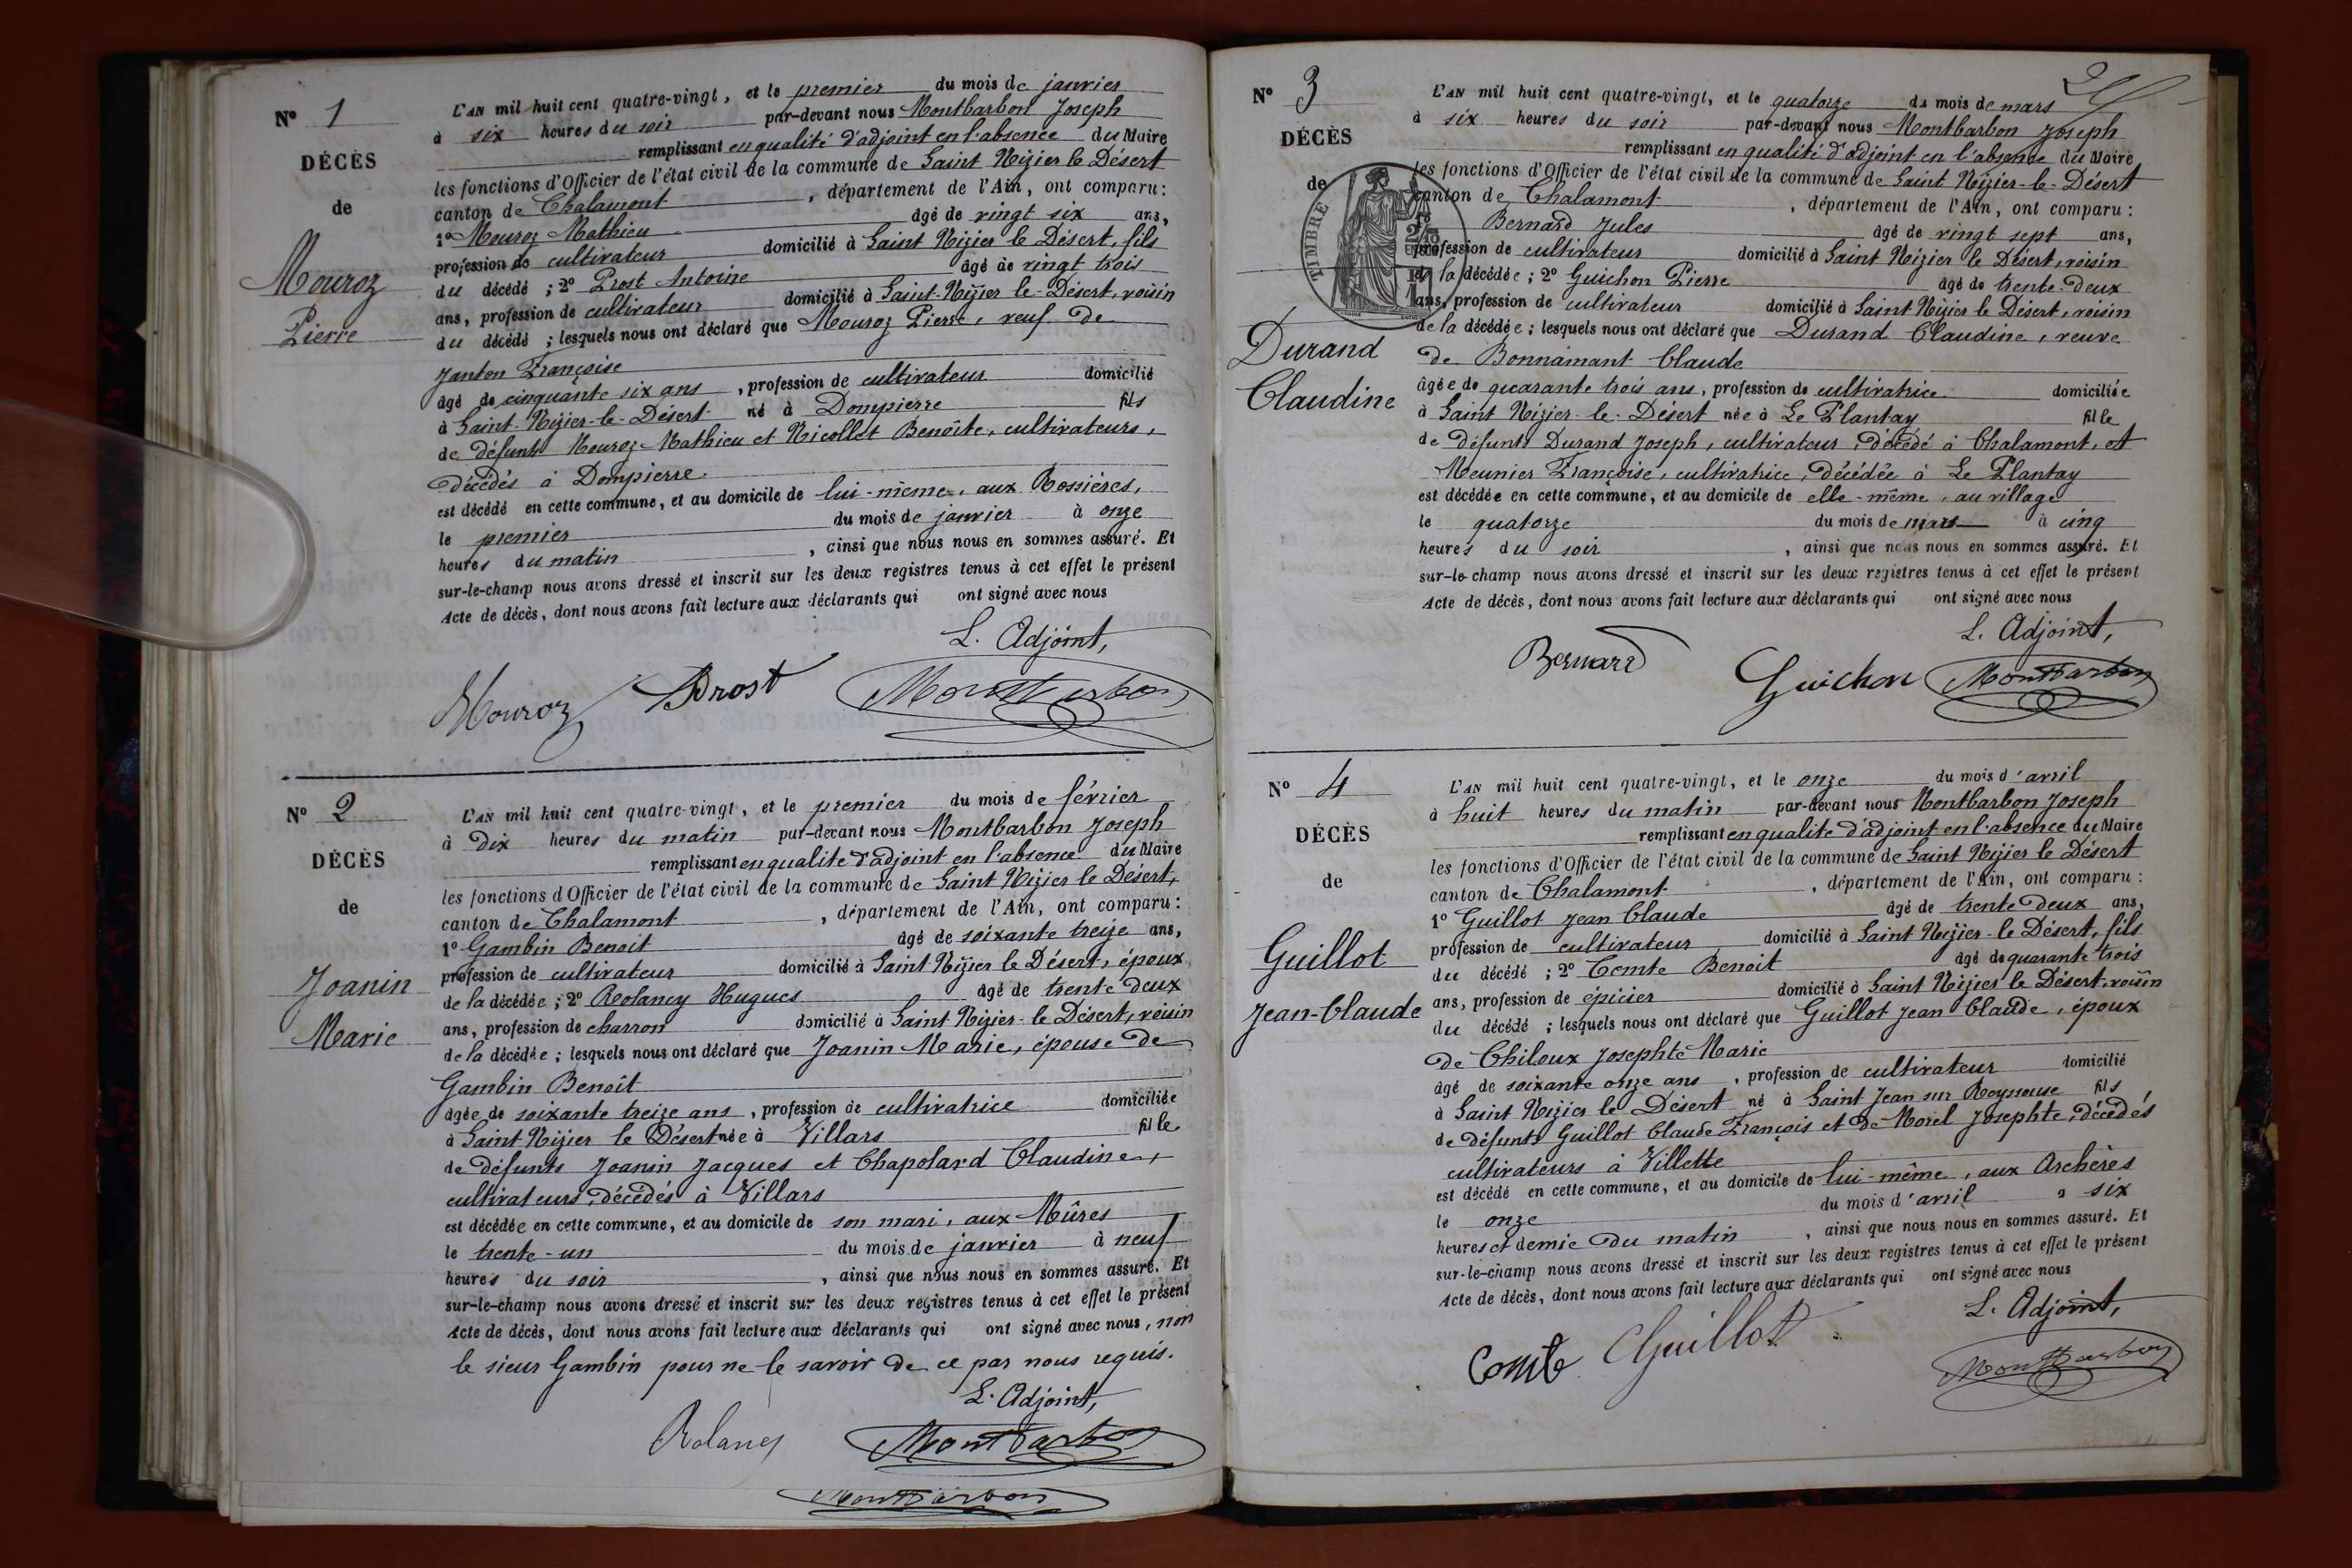 N° 1
DÉCÈS
de
Mouroz
Pierre
L'AN mil huit cent quatre-vingt, et le premier du mois de janvier
à six heures du soir par-devant nous Montbarbon Joseph
remplissant en qualité d'adjoint en l'absence du Maire
les fonctions d'Officier de l'état civil de la commune de Saint Nizier le Désert
canton de Chalamont, département de l'Ain, ont comparu :
1° Mouroz Mathieu âgé de vingt six ans,
profession de cultivateur domicilié à Saint Nizier le Désert, fils
du décédé ; 2° Prost Antoine âgé de vingt trois
ans, profession de cultivateur domicilié à Saint-Nizier le-Désert, voisin
du décédé ; lesquels nous ont déclaré que Mouroz Pierre, veuf de
Janton Françoise
âgé de cinquante six ans, profession de cultivateur domicilié
à Saint-Nizier-le-Désert né à Dompierre fils
de défunts Mouroz Mathieu et Nicollet Benoîte, cultivateurs,
décédés à Dompierre
est décédé en cette commune, et au domicile de lui-même, aux Rossières,
le premier du mois de janvier à onze
heures du matin, ainsi que nous nous en sommes assuré. Et
sur-le-champ nous avons dressé et inscrit sur les deux registres tenus à cet effet le présent
Acte de décès, dont nous avons fait lecture aux déclarants qui ont signé avec nous
L. Adjoint,
Mouroz Prost Montbarbon
N° 2
DÉCÈS
de
Joanin
Marie
L'AN mil huit cent quatre-vingt, et le premier du mois de février
à dix heures du matin par-devant nous Montbarbon Joseph
remplissant en qualité d'adjoint en l'absence du Maire
les fonctions d'Officier de l'état civil de la commune de Saint Nizier le Désert,
canton de Chalamont, département de l'Ain, ont comparu :
1° Gambin Benoit âgé de soixante treize ans,
profession de cultivateur domicilié à Saint-Nizier le Désert, époux
de la décédée ; 2° Rolancy Hugues âgé de trente deux
ans, profession de charron domicilié à Saint-Nizier-le Désert, voisin
de la décédée ; lesquels nous ont déclaré que Joanin Marie, épouse de
Gambin Benoît
âgée de soixante treize ans, profession de cultivatrice domiciliée
à Saint-Nizier le Désert née à Villars fille
de défunts Joanin Jacques et Chapolard Claudine,
cultivateurs, décédés à Villars
est décédée en cette commune, et au domicile de son mari, aux Mûres
le trente-un du mois de janvier à neuf
heures du soir, ainsi que nous nous en sommes assuré. Et
sur-le-champ nous avons dressé et inscrit sur les deux registres tenus à cet effet le présent
Acte de décès, dont nous avons fait lecture aux déclarants qui ont signé avec nous, non
le sieur Gambin pour ne le savoir de ce par nous requis.
L. Adjoint,
Rolancy Montbarbon
Montbarbon
N° 3
DÉCÈS
de
TIMBRE
Durand
Claudine
L'AN mil huit cent quatre-vingt, et le quatorze du mois de mars
à six heures du soir par-devant nous Montbarbon Joseph
remplissant en qualité d'adjoint en l'absence du Maire
les fonctions d'Officier de l'état civil de la commune de Saint Nizier-le-Désert
canton de Chalamont, département de l'Ain, ont comparu :
1° Bernard Jules âgé de vingt sept ans,
profession de cultivateur domicilié à Saint Nizier le Désert, voisin
de la décédée ; 2° Guichon Pierre âgé de trente-deux
ans, profession de cultivateur domicilié à Saint Nizier le Désert, voisin
de la décédée ; lesquels nous ont déclaré que Durand Claudine, veuve
de Bonnamant Claude
âgée de quarante trois ans, profession de cultivatrice domiciliée
à Saint Nizier-le-Désert née à Le Plantay fille
de défunts Durand Joseph, cultivateur, décédé à Chalamont, et
Meunier Françoise, cultivatrice, décédée à Le Plantay
est décédée en cette commune, et au domicile de elle-même, au village
le quatorze du mois de mars à cinq
heures du soir, ainsi que nous nous en sommes assuré. Et
sur-le-champ nous avons dressé et inscrit sur les deux registres tenus à cet effet le présent
Acte de décès, dont nous avons fait lecture aux déclarants qui ont signé avec nous
L. Adjoint,
Bernard Guichon Montbarbon
N° 4
DÉCÈS
de
Guillot
Jean-Claude
L'AN mil huit cent quatre-vingt, et le onze du mois d'avril
à huit heures du matin par-devant nous Montbarbon Joseph
remplissant en qualité d'adjoint en l'absence du Maire
les fonctions d'Officier de l'état civil de la commune de Saint Nizier le Désert
canton de Chalamont, département de l'Ain, ont comparu :
1° Guillot Jean Claude âgé de trente deux ans,
profession de cultivateur domicilié à Saint Nizier-le Désert, fils
du décédé ; 2° Comte Benoit âgé de quarante trois
ans, profession de épicier domicilié à Saint Nizier le Désert, voisin
du décédé ; lesquels nous ont déclaré que Guillot Jean Claude, époux
de Chiloux Josephte Marie
âgé de soixante onze ans, profession de cultivateur domicilié
à Saint Nizier le Désert né à Saint Jean sur Reyssouse fils
de défunts Guillot Claude François et de Morel Josephte, décédés
cultivateurs à Villette
est décédé en cette commune, et au domicile de lui-même, aux Archères
le onze du mois d'avril à six
heures et demie du matin, ainsi que nous nous en sommes assuré. Et
sur-le-champ nous avons dressé et inscrit sur les deux registres tenus à cet effet le présent
Acte de décès, dont nous avons fait lecture aux déclarants qui ont signé avec nous
L. Adjoint,
Comte Guillot Montbarbon